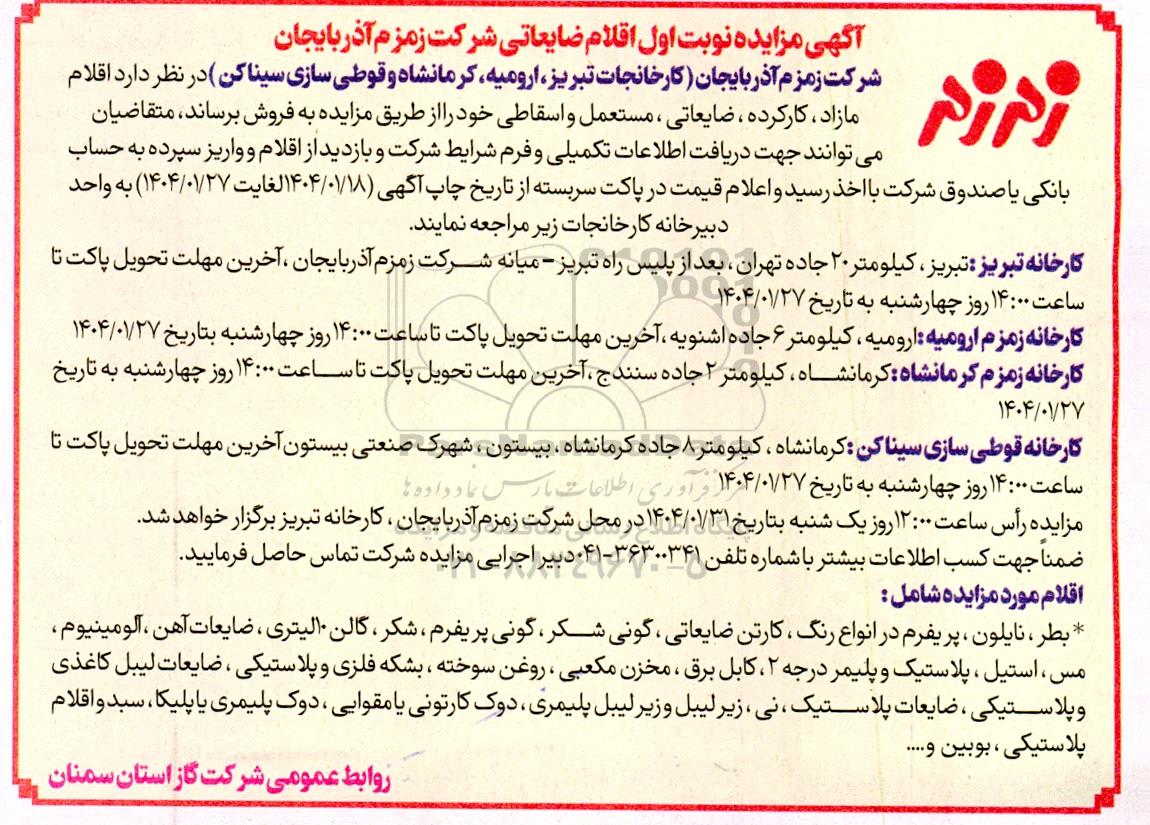 آگهی مزایده نوبت اول اقلام ضایعاتی شرکت زمزم آذربایجان
زمزم
شرکت زمزم آذربایجان (کارخانجات تبریز، ارومیه، کرمانشاه و قوطی سازی سیناکن) در نظر دارد اقلام
مازاد، کارکرده، ضایعاتی، مستعمل و اسقاطی خود را از طریق مزایده به فروش برساند، متقاضیان
می توانند جهت دریافت اطلاعات تکمیلی و فرم شرایط شرکت و بازدید از اقلام و واریز سپرده به حساب
بانکی یا صندوق شرکت با اخذ رسید و اعلام قیمت در پاکت سربسته از تاریخ چاپ آگهی (۱۴۰۴/۰۱/۱۸ لغایت ۱۴۰۴/۰۱/۲۷) به واحد
دبیرخانه کارخانجات زیر مراجعه نمایند.
کارخانه تبریز: تبریز، کیلومتر ۲۰ جاده تهران، بعد از پلیس راه تبریز - میانه شرکت زمزم آذربایجان، آخرین مهلت تحویل پاکت تا
ساعت ۱۴:۰۰ روز چهارشنبه به تاریخ ۱۴۰۴/۰۱/۲۷
کارخانه زمزم ارومیه: ارومیه، کیلومتر ۶ جاده اشنویه، آخرین مهلت تحویل پاکت تا ساعت ۱۴:۰۰ روز چهارشنبه بتاریخ ۱۴۰۴/۰۱/۲۷
کارخانه زمزم کرمانشاه: کرمانشاه، کیلومتر ۲ جاده سنندج، آخرین مهلت تحویل پاکت تا ساعت ۱۴:۰۰ روز چهارشنبه به تاریخ
۱۴۰۴/۰۱/۲۷
کارخانه قوطی سازی سیناکن: کرمانشاه، کیلومتر ۸ جاده کرمانشاه، بیستون، شهرک صنعتی بیستون آخرین مهلت تحویل پاکت تا
ساعت ۱۴:۰۰ روز چهارشنبه به تاریخ ۱۴۰۴/۰۱/۲۷
مزایده رأس ساعت ۱۲:۰۰ روز یک شنبه بتاریخ ۱۴۰۴/۰۱/۳۱ در محل شرکت زمزم آذربایجان، کارخانه تبریز برگزار خواهد شد.
ضمناً جهت کسب اطلاعات بیشتر با شماره تلفن ۳۶۳۰۰۳۴۱-۰۴۱ دبیر اجرایی مزایده شرکت تماس حاصل فرمایید.
اقلام مورد مزایده شامل:
* بطر، نایلون، پریفرم در انواع رنگ، کارتن ضایعاتی، گونی شکر، گونی پریفرم، شکر، گالن ۱۰ لیتری، ضایعات آهن، آلومینیوم،
مس، استیل، پلاستیک و پلیمر درجه ۲، کابل برق، مخزن مکعبی، روغن سوخته، بشکه فلزی و پلاستیکی، ضایعات لیبل کاغذی
و پلاستیکی، ضایعات پلاستیک، نی، زیر لیبل و زیر لیبل پلیمری، دوک کارتونی یا مقوایی، دوک پلیمری یا پلیکا، سبد و اقلام
پلاستیکی، بوبین و....
روابط عمومی شرکت گاز استان سمنان